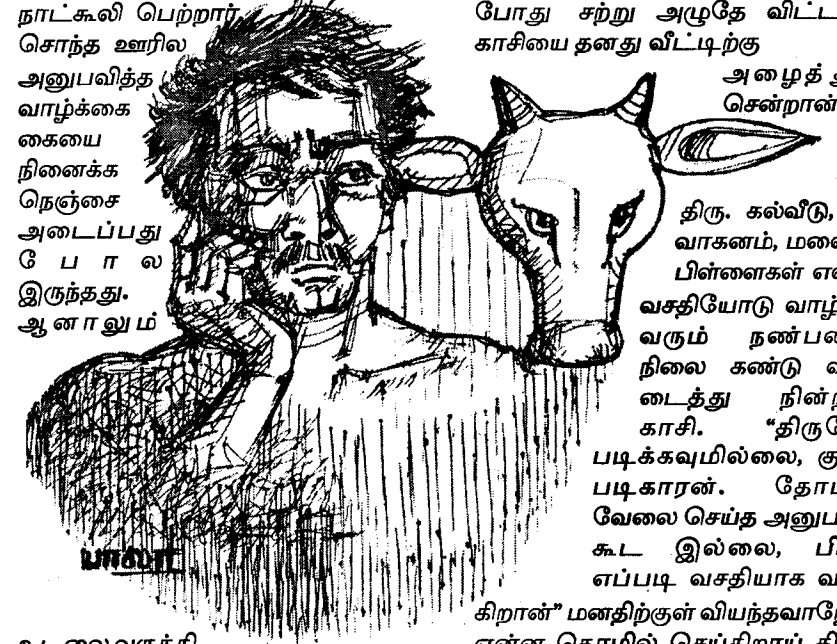 நாட்கூலி பெற்றார்
சொந்த ஊரில
அனுபவித்த
வாழ்க்கை
கையை
நினைக்க
நெஞ்சை
அடைப்பது
போல
இருந்தது.
ஆனாலும்
போது சற்று அழுதே
காசியை தனது வீட்டிற்கு
அழைத்
சென்றான்
திரு. கல்வீடு,
வாகனம்,
பிள்ளைகள்
வசதியோடு
வரும்
நிலை கண்டு
டைத்து
காசி.
படிக்கவுமில்லை,
படிகாரன்.
வேலை செய்த
கூட இல்லை,
எப்படி வசதியாக
கிறான்” மனதிற்குள்
பாலா